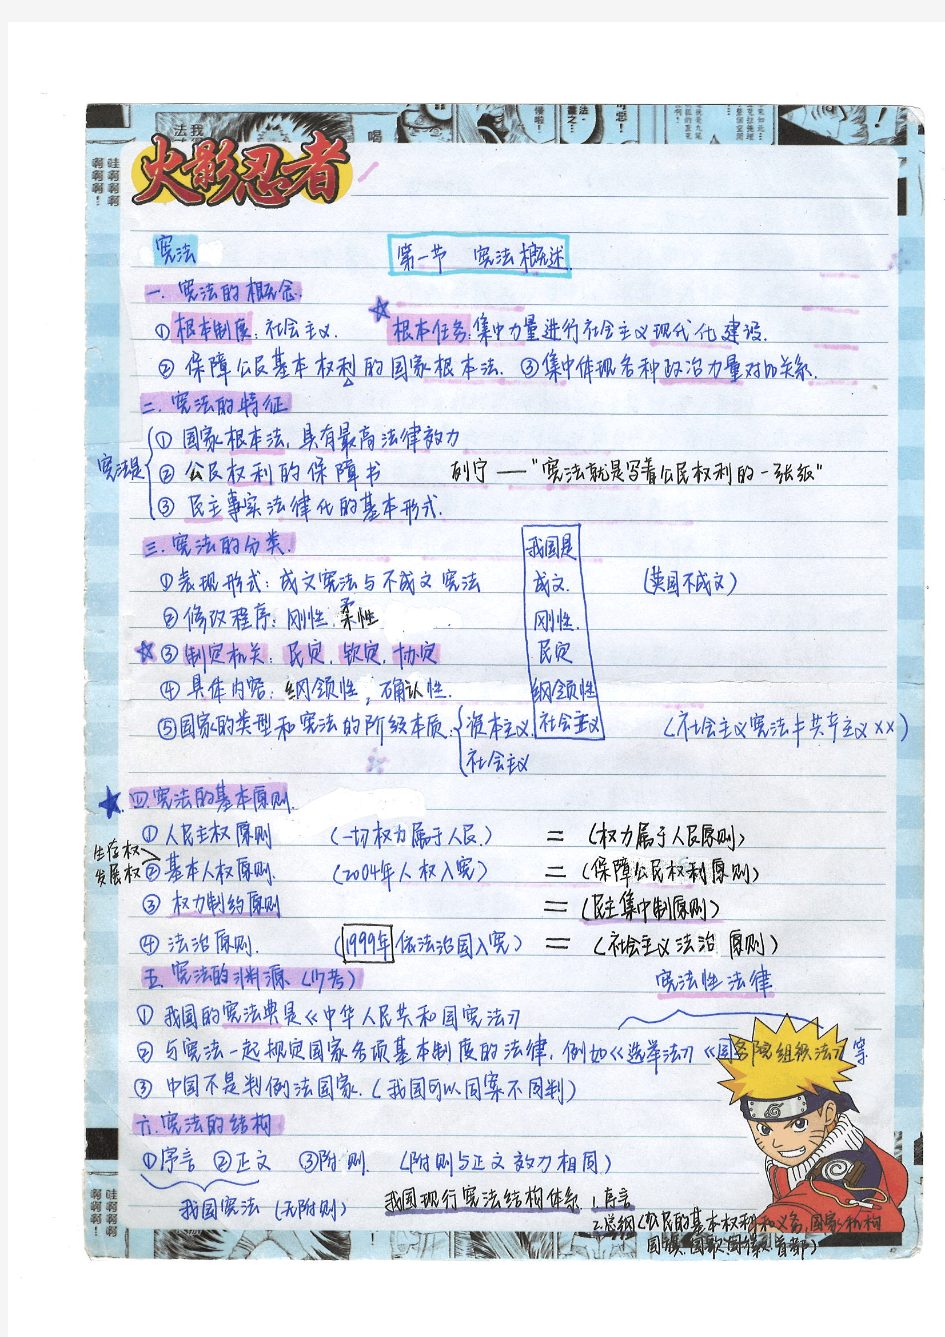 火影忍者
宪法
第一节 宪法概述.
一. 宪法的概念.
①根本制度:社会主义. ☆根本任务:集中力量进行社会主义现代化建设.
② 保障公民基本权利的国家根本法. ③集中体现各种政治力量对比关系.
二.宪法的特征
宪法是
① 国家根本法,具有最高法律效力
② 公民权利的保障书 列宁——“宪法就是写着公民权利的一张纸”
③ 民主事实法律化的基本形式.
三.宪法的分类.
我国是
①表现形式:成文宪法与不成文宪法 成文. (英国不成文)
②修改程序:刚性.柔性 刚性.
☆③制定机关:民定,钦定,协定 民定
④具体内容:纲领性,确认性. 纲领性
⑤国家的类型和宪法的阶级本质. 资本主义. 社会主义 (社会主义宪法≠共产主义××)
社会主义
★四.宪法的基本原则.
①人民主权原则 (一切权力属于人民) = (权力属于人民原则)
生存权
发展权
②基本人权原则. (2004年人权入宪) = (保障公民权利原则)
③ 权力制约原则 = (民主集中制原则)
④ 法治原则. (1999年依法治国入宪) = (社会主义法治原则)
五.宪法的渊源(少考) 宪法性法律
① 我国的宪法典是《中华人民共和国宪法》
② 与宪法一起规定国家各项基本制度的法律,例如《选举法》《国务院组织法》等
③ 中国不是判例法国家.(我国可以同案不同判)
六.宪法的结构
①序言 ②正文 ③附则. (附则与正文效力相同)
我国宪法(无附则) 我国现行宪法结构体系 1.序言
2.总纲(公民的基本权利和义务,国家机构
国旗、国歌、国徽、首都)